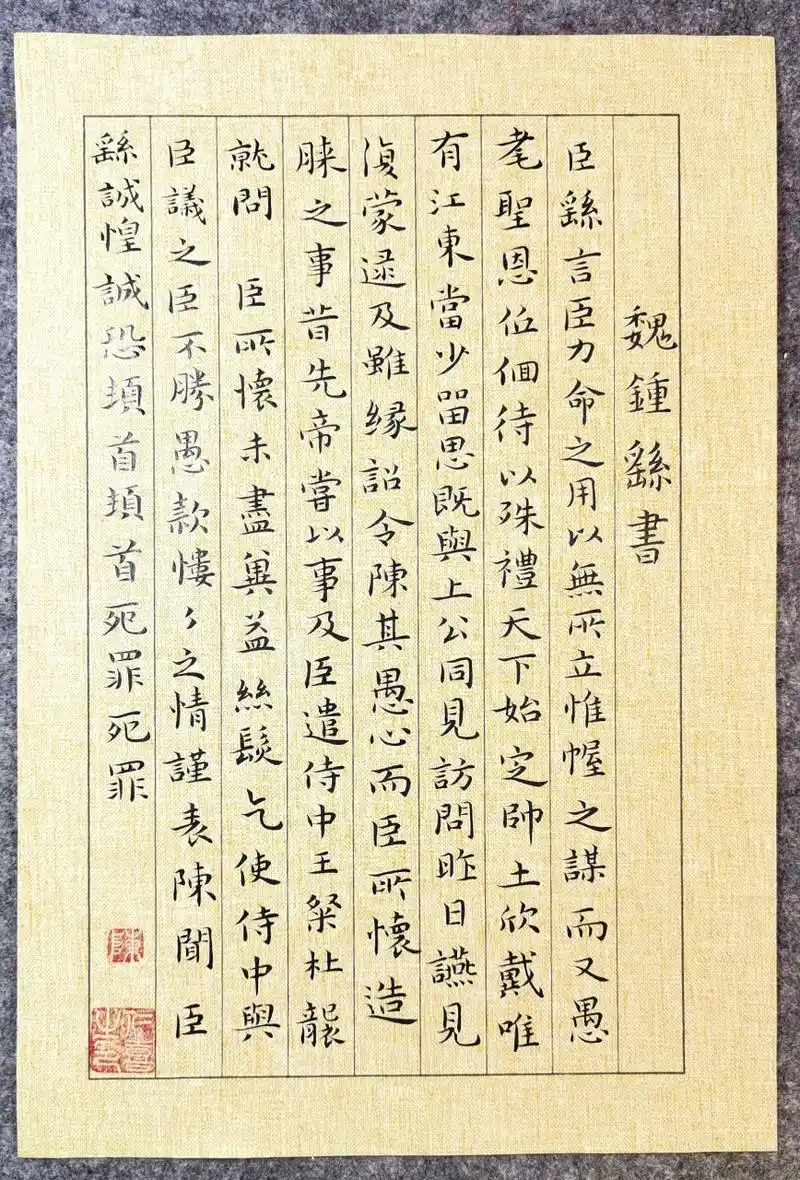 魏鍾繇書
臣繇言臣力命之用以無所立惟幄之謀而又愚
耄聖恩低佪待以殊禮天下始定帥土欣戴唯
有江東當少留思既與上公同見訪問昨日讌見
復蒙逮及雖緣詔令陳其愚心而臣所懷造
膝之事昔先帝嘗以事及臣遣侍中王粲杜襲
就問 臣所懷未盡冀益絲髮乞使侍中與
臣議之臣不勝愚款慺〻之情謹表陳聞臣
繇誠惶誠恐頓首頓首死罪死罪